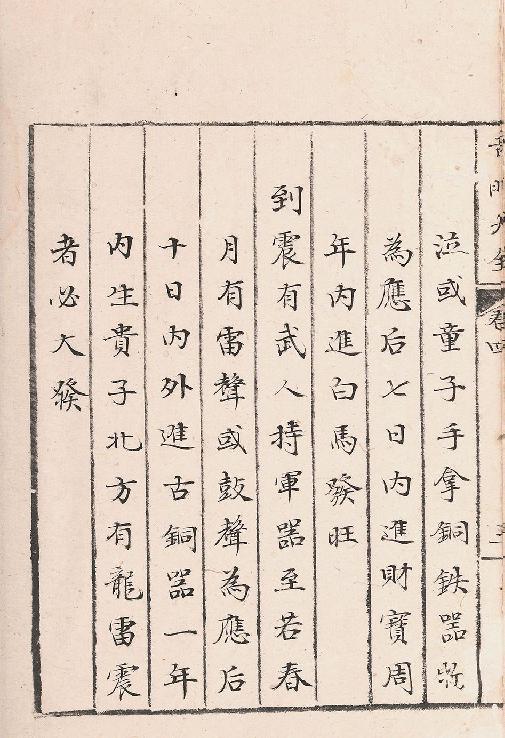 卷四
泣或童子手拿銅鉄器
為應后七日内進財寶周
年内進白馬發旺
到震有武人持軍器至若春
月有雷聲或鼓聲為應后
十日内外進古銅器一年
内生貴子北方有龍雷震
者必大發